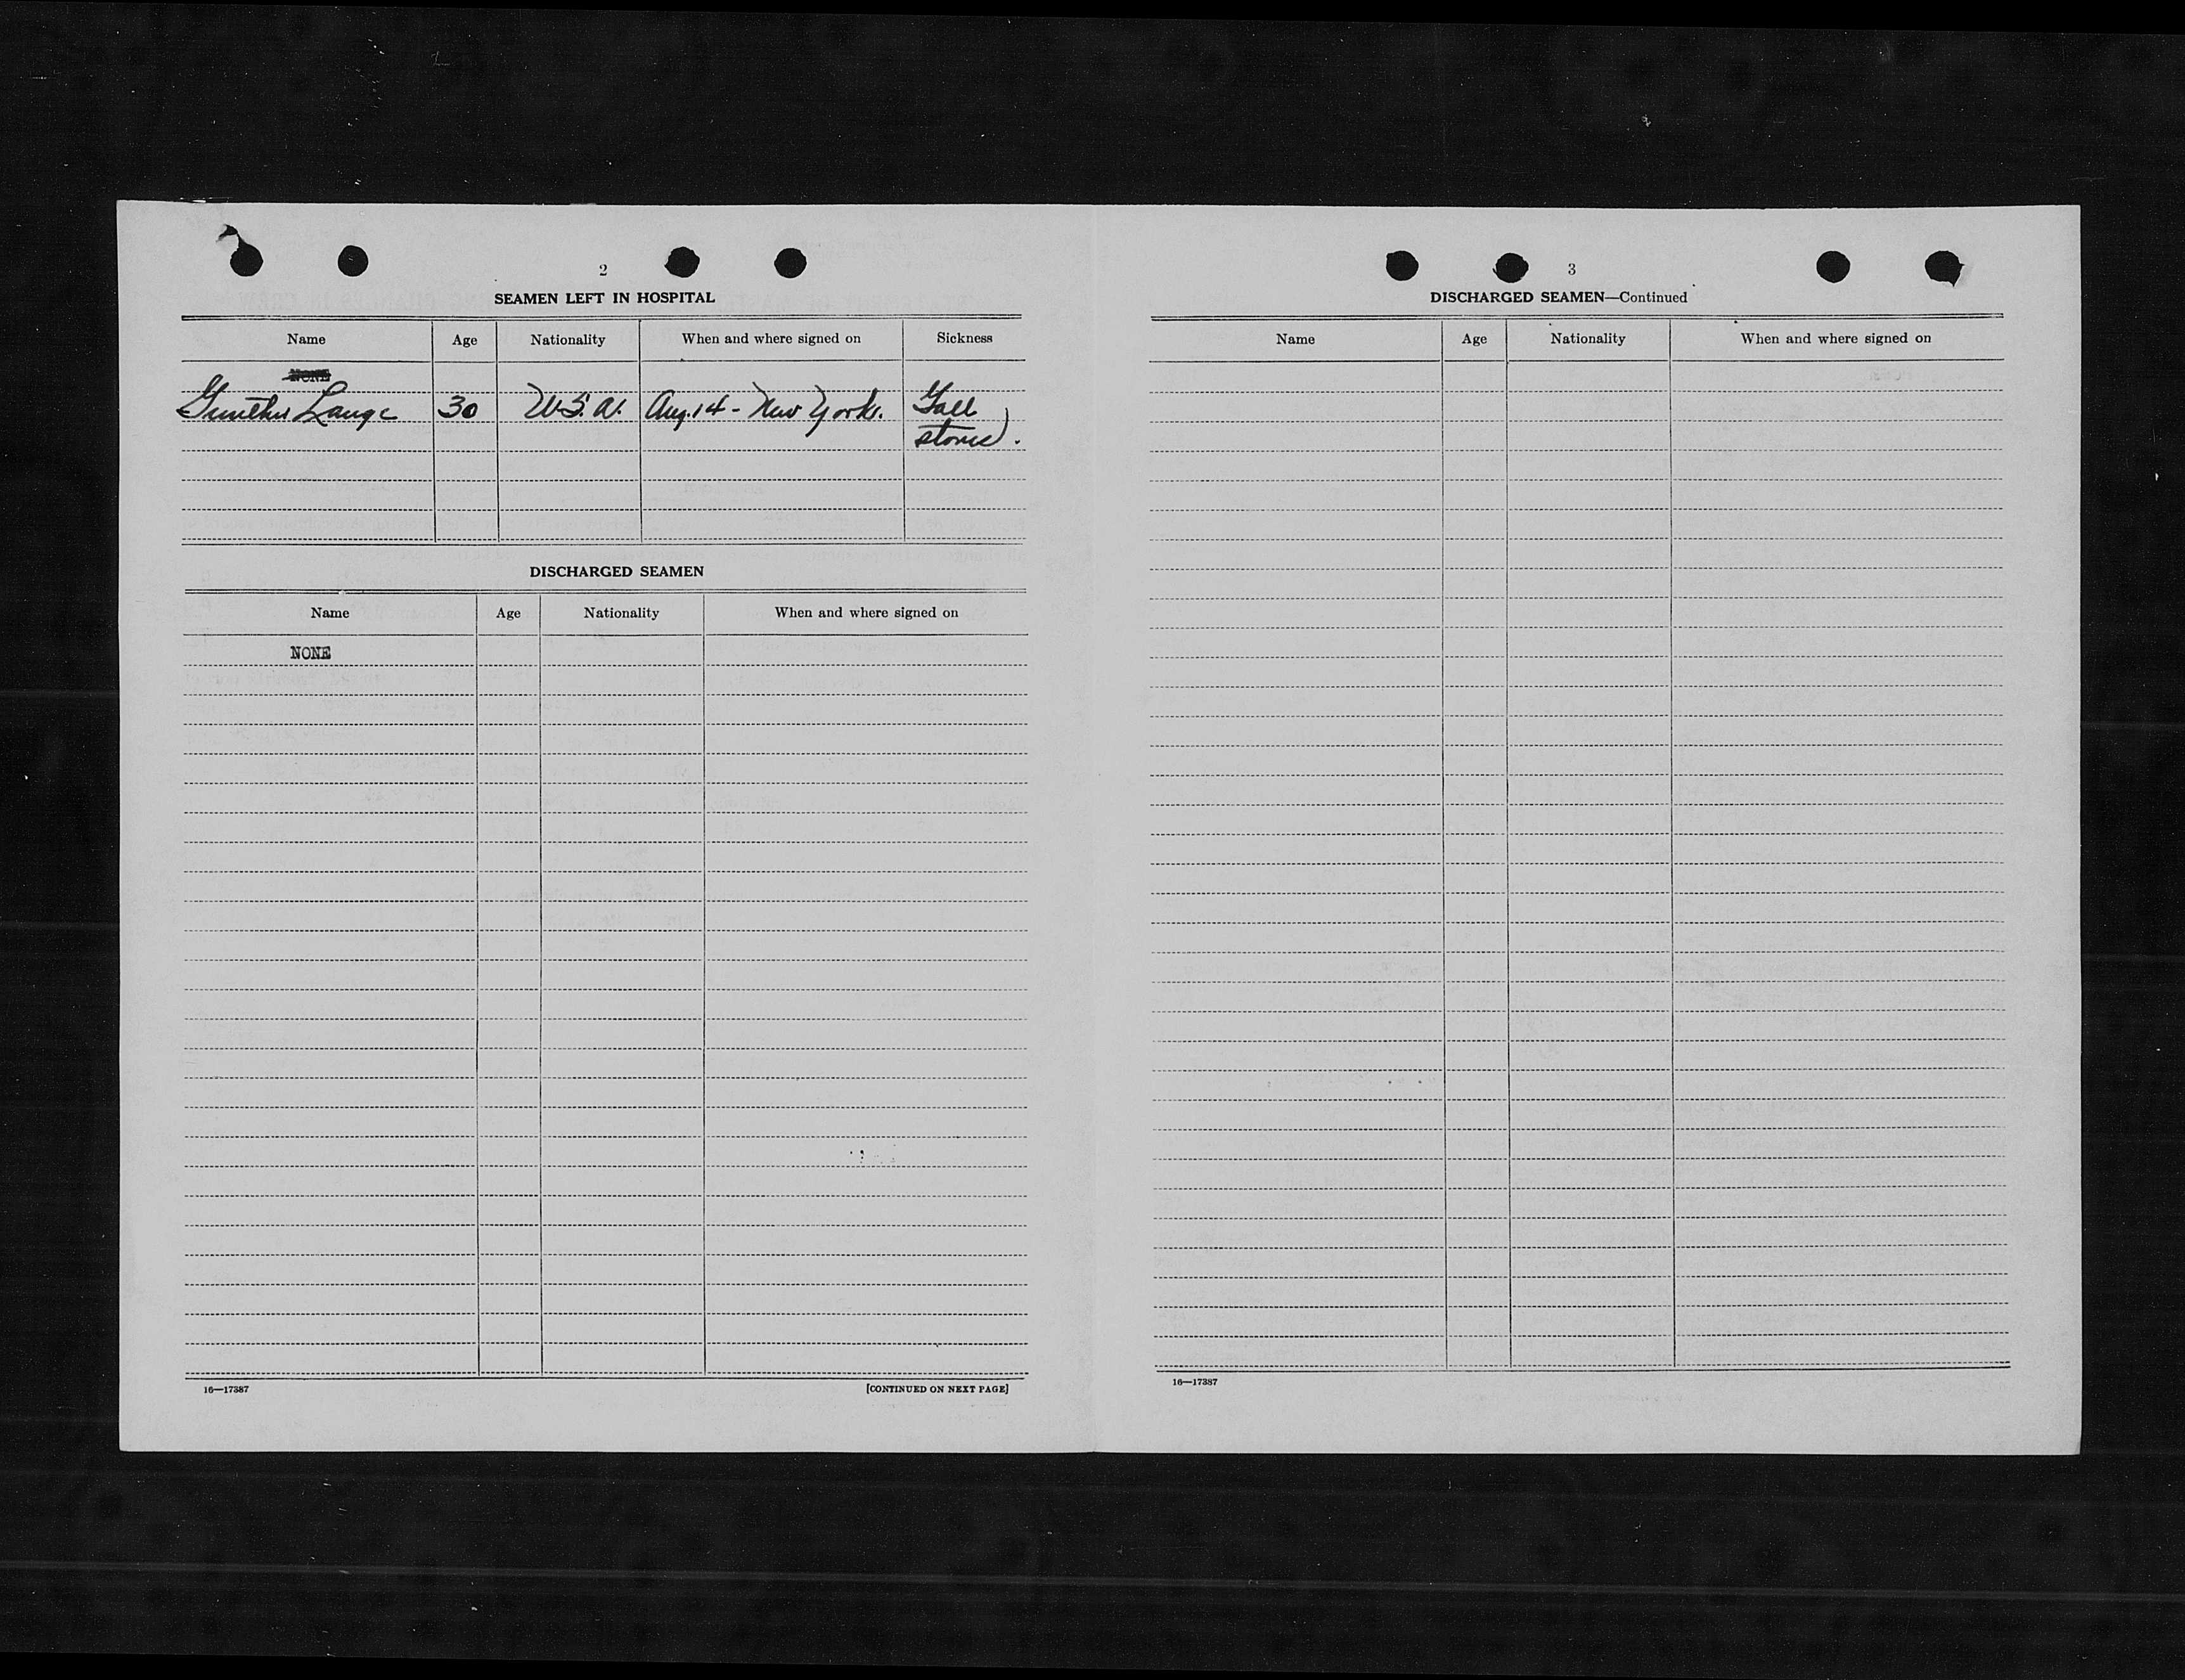 2
SEAMEN LEFT IN HOSPITAL
Name Age Nationality When and where signed on Sickness
NONE
Gunther Lange 30 U.S.A. Aug. 14 - New York. Gall
stones.
DISCHARGED SEAMEN
Name Age Nationality When and where signed on
NONE
16—17387 [CONTINUED ON NEXT PAGE]
3
DISCHARGED SEAMEN—Continued
Name Age Nationality When and where signed on
16—17387